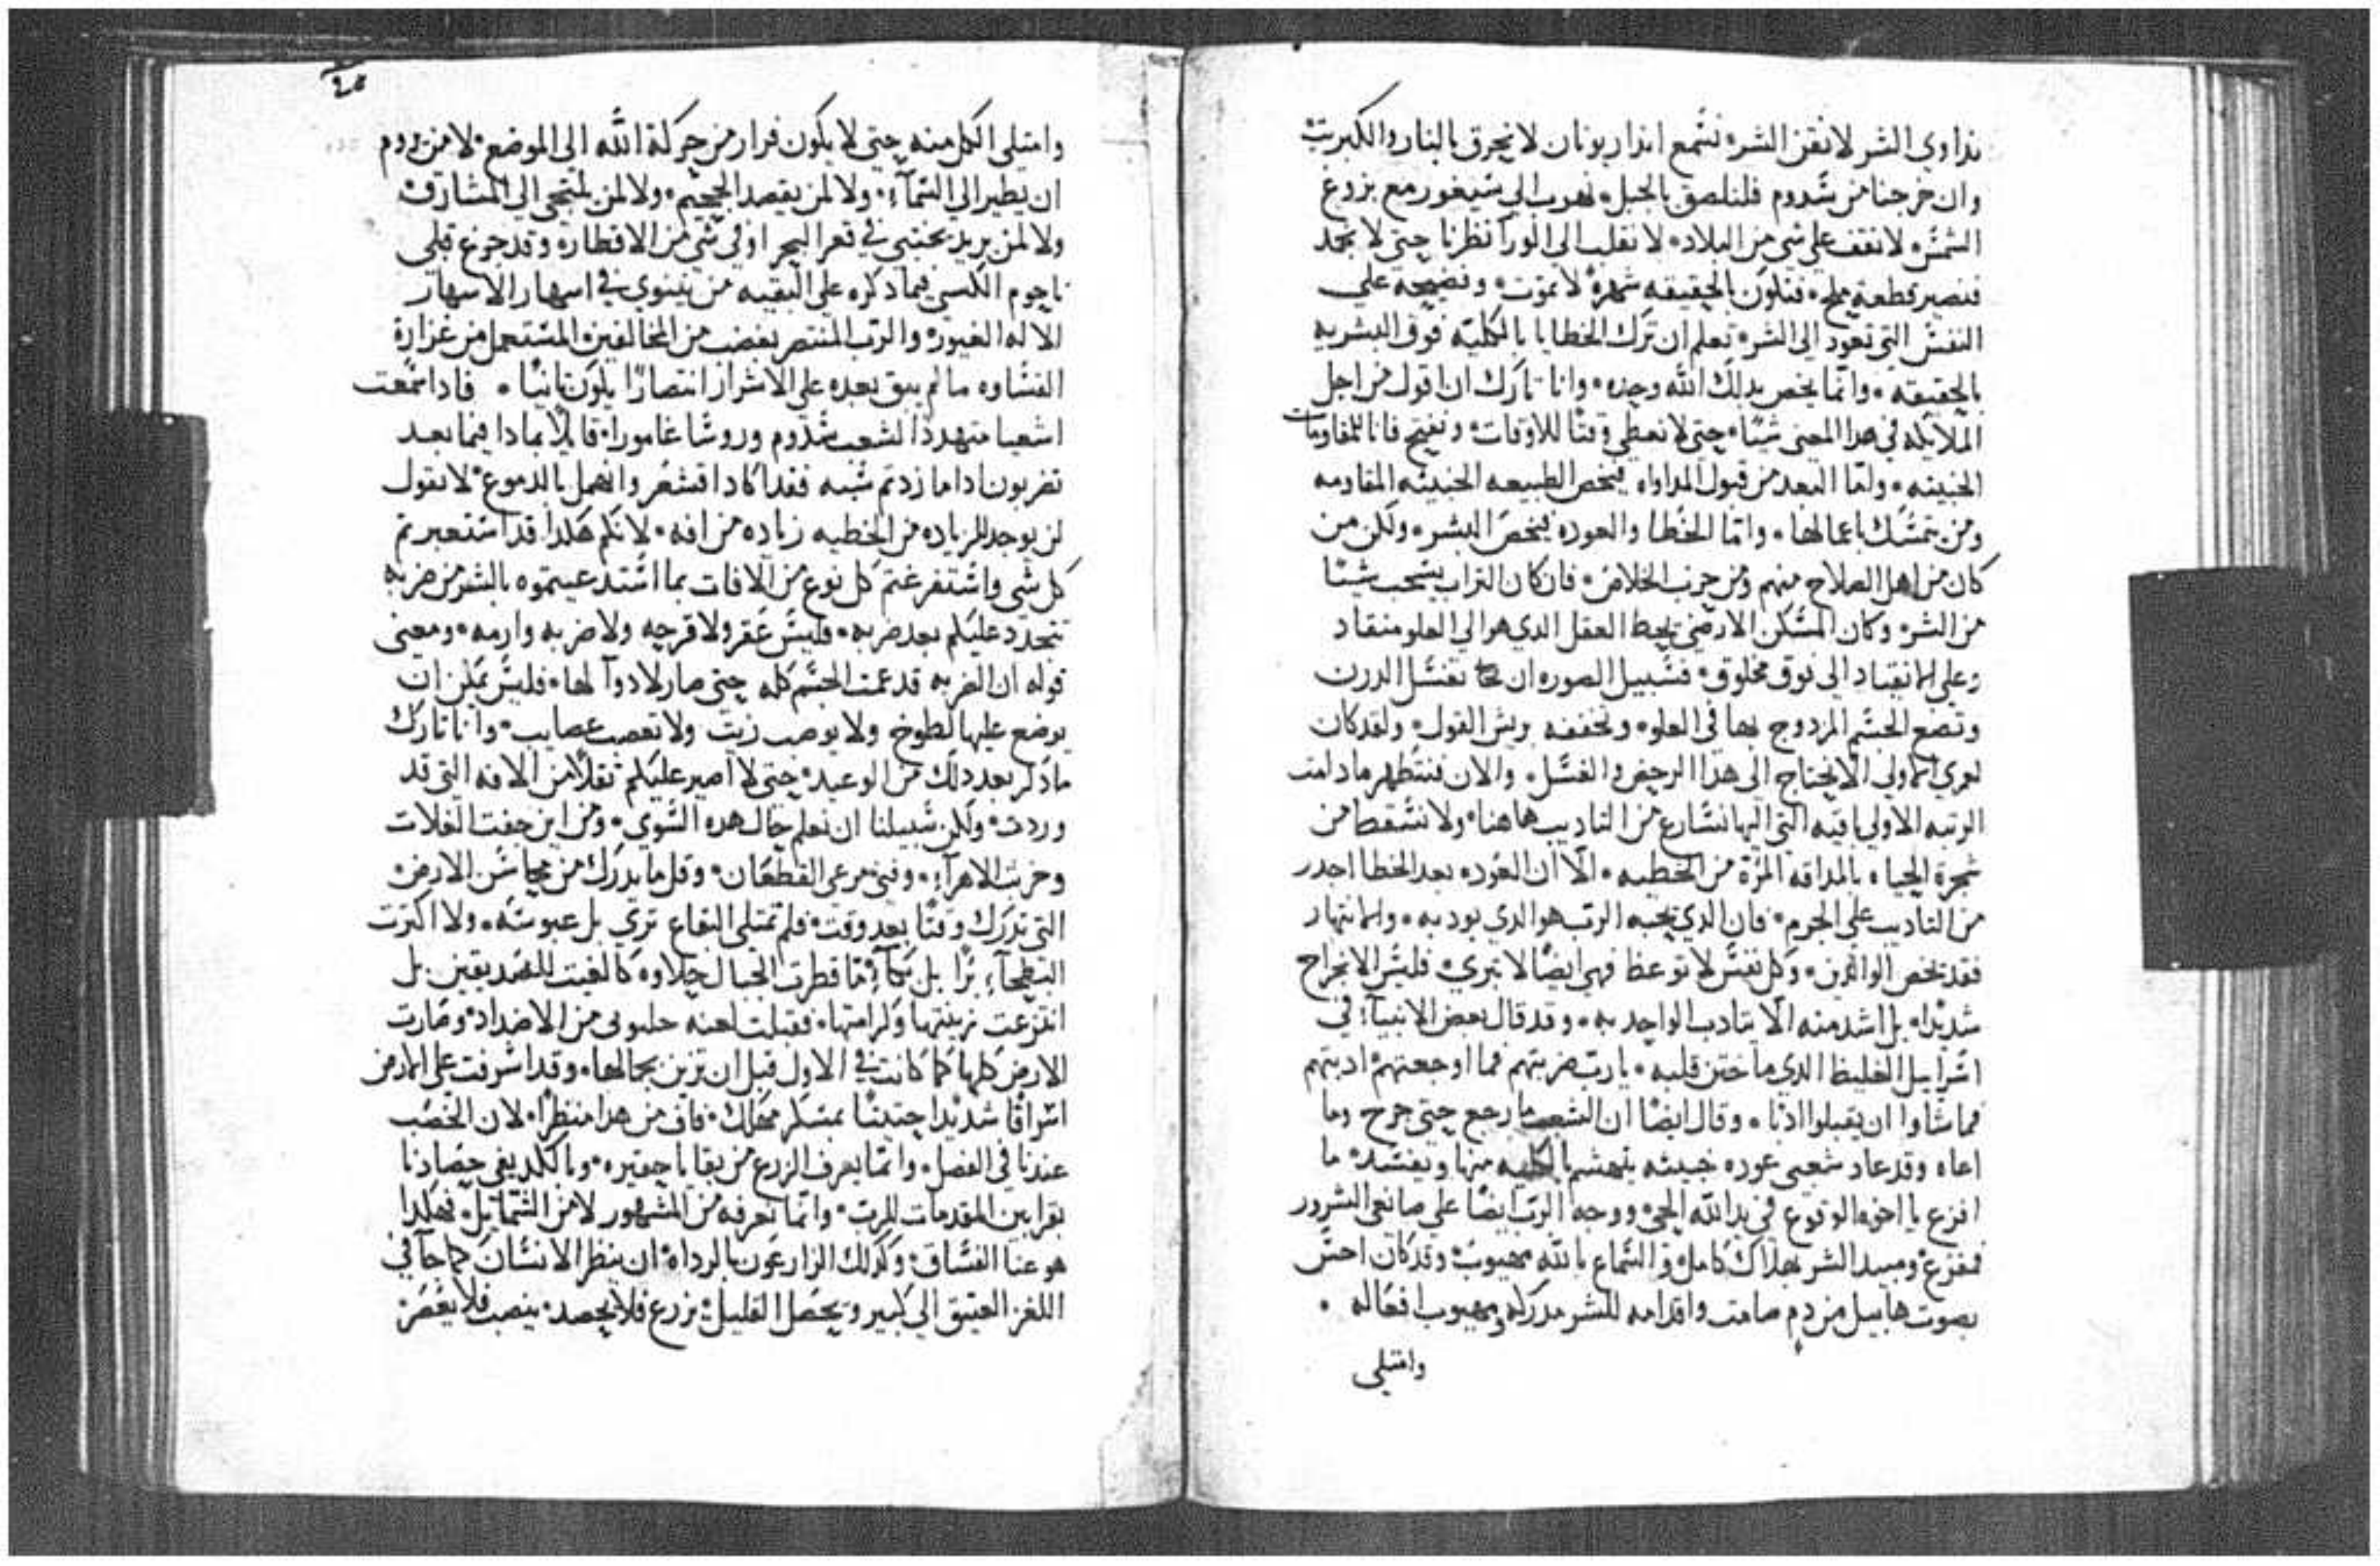 نداوي الشر لا نقن الشر نسمع اندار يونان لا نحرق بالنار والكبريت
وان خرجنا من سدوم فلنلصق بالجبل نهرب الي سيغور مع بزوغ
الشمس لا نقف علي شي من البلاد لا نقلب الى الورآ نظرنا حتى لا نجمد
فنصير قطعة ملح فنلون بالحقيقه شهرةً لا تموت وفضيحة علي
النفس التي تعود الى الشر تعلم ان ترك الخطايا بالكليه فوق البشريه
بالحقيقه وانما يخص بدلك الله وحده وانا تارك ان اقول من اجل
الملايكه في هدا المعنى شيئا حتى لا نعطي وقتًا للاوقات ونفتح فانا للمقاومات
الخبيثه وامّا البعد من قبول المداواه فيخص الطبيعه الخبيثه المقاومه
ومن يتمسك باعمالها وامّا الخطا والعوده فيخص البشر ولكن من
كان من اهل الصلاح منهم ومن حزب الخلاص فان كان التراب يسحب شيئا
من الشر وكان المسكن الارضي يحط العقل الدي هو الي العلو منقاد
وعلي الانقياد الى فوق مخلوق فسبيل الصوره ان تغسل الدرن
وتضع الجسم المزدوج بها في العلو وتخففه بريش القول ولقد كان
لعمري اولي الا نحتاج الى هذا الرحض والغسل والان فنتطهر ما دامت
الرتبه الاولي باقيه التي اليها نسارع من التاديب هاهنا ولا نسقط من
شجرة الحياه بالمداقه المرّة من الخطيه الّا ان العوده بعد الخطا اجدر
من التاديب علي الجرم فان الدي يحبه الرب هو الدي يودبه والانتهار
فقد يخص الوالدين وكل نفس لا توعظ فهي ايضًا لا تبري فليس الانجراح
شديدًا بل اشد منه الّا يتادب الواحد به وقد قال بعض الانبيآء في
اسراييل الغليظ الدي ما ختن قلبه يارب ضربتهم فما اوجعتهم ادبتهم
فما شاوا ان يقبلوا ادبًا وقال ايضًا ان الشعب ما رجع حتى جرح وما
اعاه وقد عاد شعبي عوده خبيثه يتهشم بالكليه منها ويفسد ما
افزع يا اخوه الوقوع في يد الله الحي ووجه الرب ايضًا علي صانعي الشرور
فمفزع ومبيد الشر بهلاك كامل والسماع بالله مهيوب وقد كان احس
بصوت هابيل من دم صامت واقدامه للشر مدركه ومهيوب افعاله
وامتلي
وامتلي الكل منه حتى لا يكون فرار من حركة الله الى الموضع لا من يروم
ان يطير الي السمآء ولا لمن يقصد الجحيم ولا لمن يلتجي الي المشارق
ولا لمن يريد يختبي في قعر البحر او في شي من الاقطار وقد جزع قبلي
ناحوم الكسي فيما دكره علي البقيه من نينوي في اسهار الاسهار
الاله الغيور والرب المنتصر بغضب من المخالفين المستعمل من غزارة
القساوه ما لم يبق بعده علي الاشرار انتصارًا يلون ثانيًا فادا سمعت
اشعيا متهددًا لشعب سدوم وروسا غامورا قايلًا بمادا فيما بعد
تضربون ادا ما زدتم شبه فقد اكاد اقشعر وانهمل بالدموع لا نقول
لن يوجد للزياده من الخطيه زياده من افه لانكم هكدا قد استعبرتم
كل شي واستفرغتم كل نوع من الافات بما استدعيتموه بالشر من ضربه
تتجدد عليكم بعد ضربه فليس عقر ولا قرحه ولا ضربه وارمه ومعنى
قوله ان الضربه قد عمت الجسم كله حتى صار لا دوآ لها فليس يمكن ان
يوضع عليها لطوخ ولا يوصب زيت ولا تعصب عصايب وانا تارك
ما دكر بعد دلك من الوعيد حتى لا اصير عليكم ثقلًا من الافه التي قد
وردت ولكن سبيلنا ان نعلم حال هده السوي ومن اين جفت الغلات
وخربت الاهرآء وفني مرعي القطعان وقل ما يدرك من محاسن الارض
التي تدرك وقتًا بعد وقت فلم تمتلي البقاع تري بل عبوسة ولا اكترت
البطحآء برًا بل بكآء ما قطرت الجبال حلاوه كالغيت للصديقين بل
انتزعت زينتها وكرامتها فقبلت لعنه جلبوني من الاضداد وصارت
الارض كلها كما كانت في الاول قبل ان تزين بجمالها وقد اشرفت على الارض
اشرافًا شديدا حتيتًا بمسكر مهلك فاف من هدا منظرًا لان الخصب
عندنا في الفصل وانما يعرف الزرع من بقايا حقيره وبالكد يفي حصادنا
بقرابين المقدمات للرب وانما نعرفه من المشهور لا من الشمايل فهكدا
هو عنا الفساق وكدلك الزارعون بالرداه ان ينظر الانسان كما جآ في
اللغز العتيق الي كبير ويحصل القليل يزرع فلا يحصد ينصب فلا يعصر